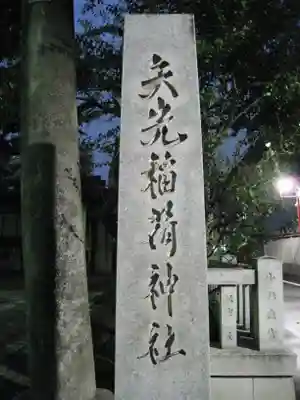 矢先稲荷神社